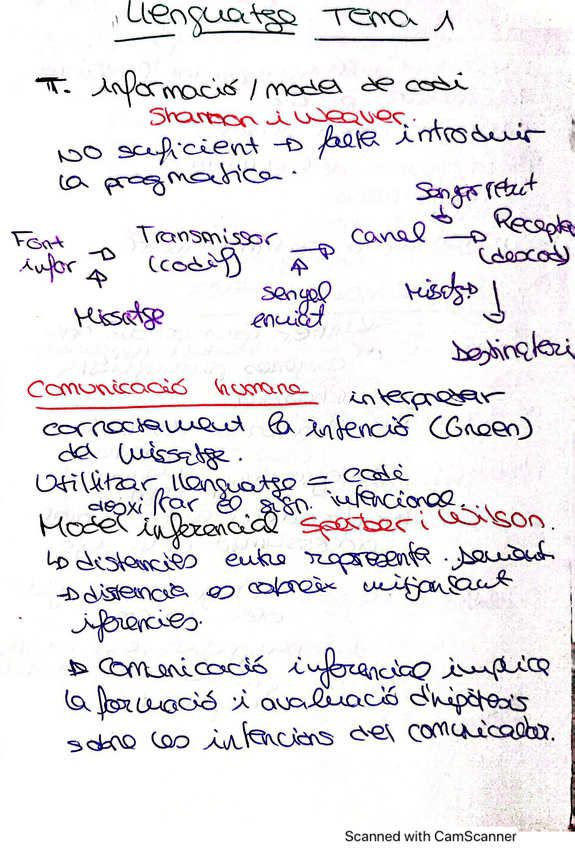 Llenguatge Tema 1
T. informació / model de codi
Shannon i Weaver.
NO suficient → falta introduir
la pragmàtica.
Senyal rebut
Font → Transmissor → canal → Recepto
infor (codif) (descod)
Missatge senyal Missatge
enviat
Destinatari
Comunicació humana interpretar
correctament la intenció (Green)
del missatge.
Utilitzar llenguatge = codi
desxifrar el sign. intencional.
Model inferencial Sperber i Wilson.
↳ distancies entre representa. semant
→ distancia es cobreix mitjansant
iferencies.
→ comunicació inferencial implica
la formació i avaluació d'hipòtesis
sobre les intencions del comunicador.
Scanned with CamScanner